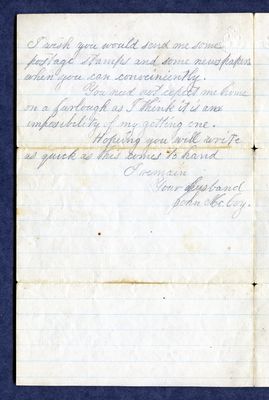 I wish you would send me some
postage stamps and some newspapers
when you can conveniently.
You need not expect me home
on a furlough as I think it is an
imposibility of my getting one.
Hoping you will write
as quick as this comes to hand
I remain
Your husband
John McCoy.